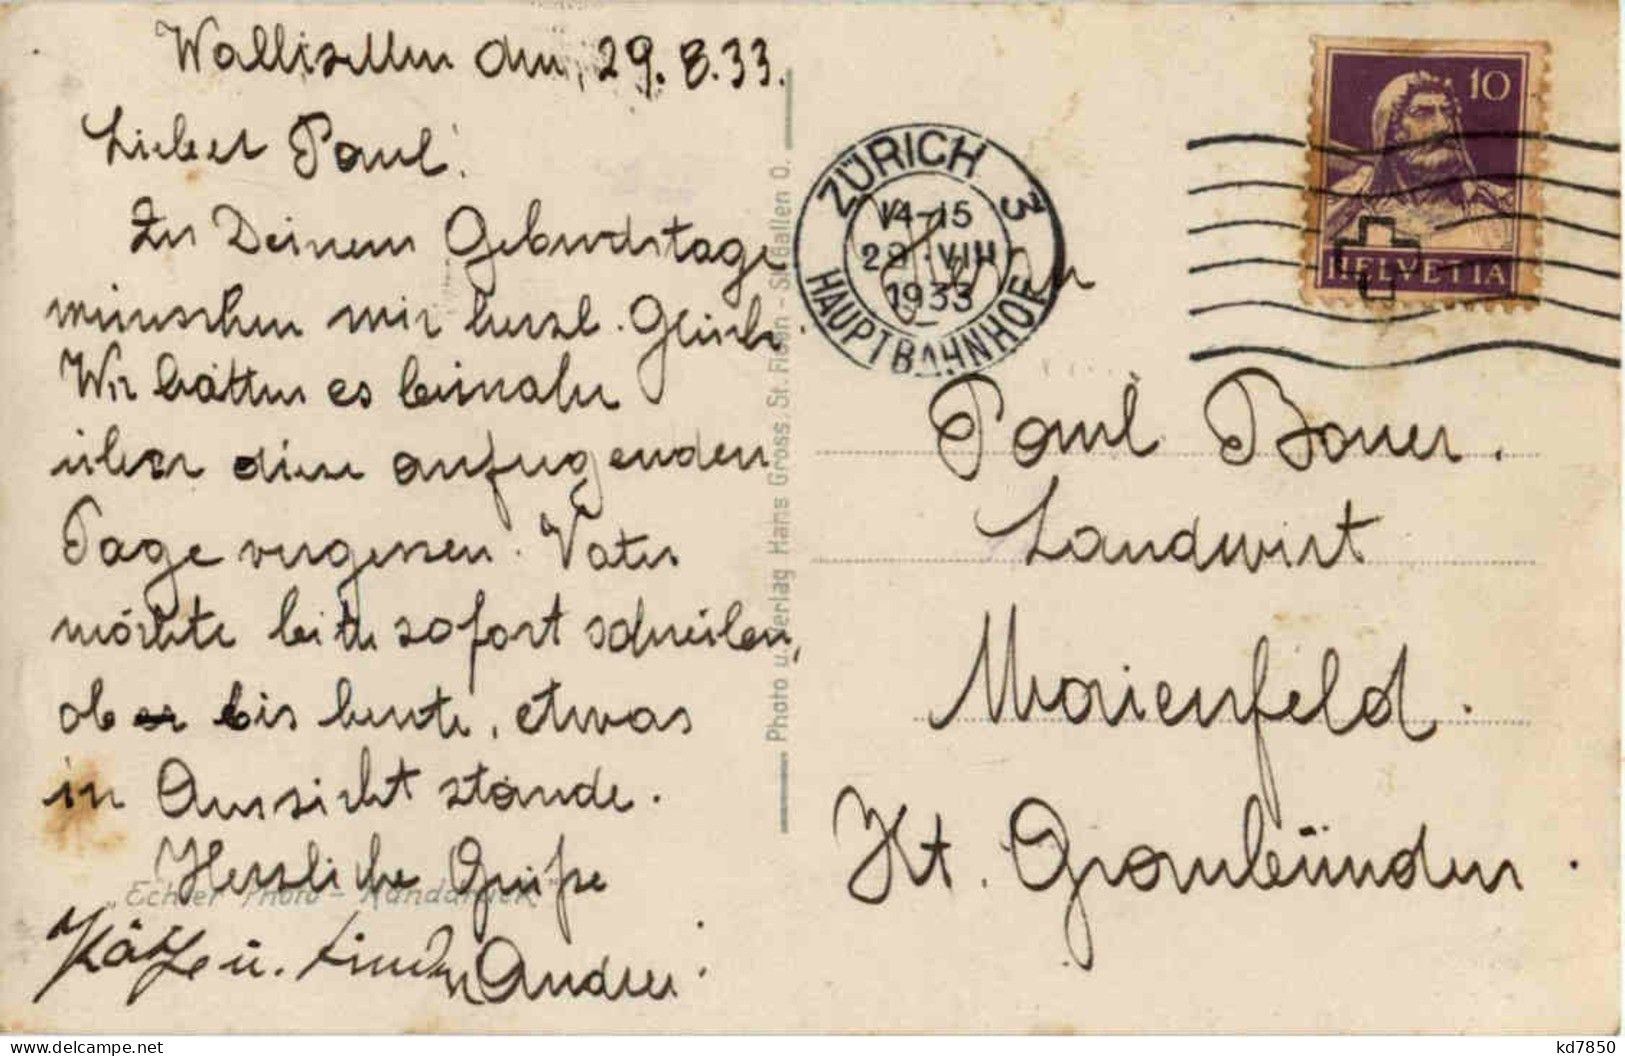 Wallisellen den, 29.8.33.
Lieber Paul!
Zu Deinem Geburtstage
wünschen wir herzl. Glück.
Wir hätten es beinahe
über diese aufregenden
Tage vergessen. Vater
möchte bitte sofort schreiben,
ob er bis heute, etwas
in Aussicht stände.
Herzliche Grüsse
u.
Andrei
"Echter Photo-Handabzug"
Photo u. Verlag Hans Gross, St. Fiden - St. Gallen O.
ZÜRICH 3
14-15
29.VIII
1933
HAUPTBAHNHOF
10
HELVETIA
Paul Bauer.
Landwirt
Maienfeld.
Kt. Graubünden.
kd7850